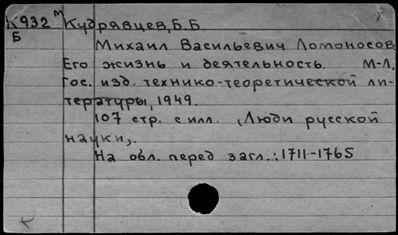 К932 м Кудрявцев, Б.Б.
Б
Михаил Васильевич Ломоносов
Его жизнь и деятельность. М-Л.
Гос. изд. технико-теоретической ли-
тературы, 1949.
107 стр. с илл. „Люди русской
науки„.
На обл. перед загл.: 1711-1765